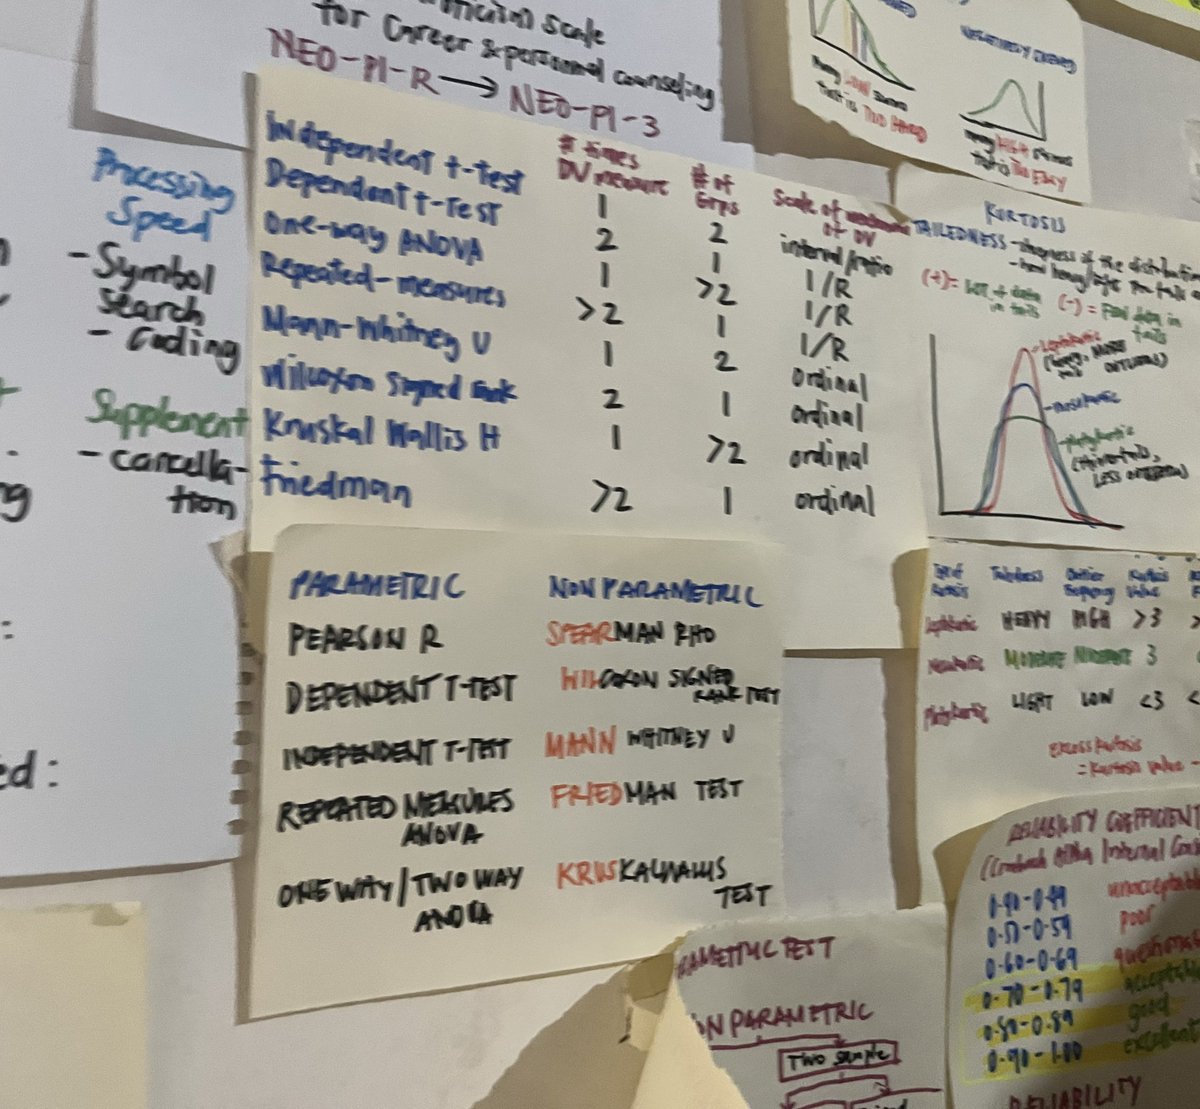 for Career & personal counseling
NEO-PI-R → NEO-PI-3
Processing
Speed
- Symbol
Search
- Coding
Supplement
- cancella-
tion
# times
DV measure
# of
Grps
Scale of
of DV
Independent t-test 1 2 interval/ratio
Dependent t-Test 2 1 I/R
One-way ANOVA 1 >2 I/R
Repeated-measures >2 1 I/R
Mann-Whitney U 1 2 Ordinal
Wilcoxon Signed Rank 2 1 ordinal
Kruskal Wallis H 1 >2 ordinal
Friedman >2 1 ordinal
PARAMETRIC NON PARAMETRIC
PEARSON R SPEARMAN RHO
DEPENDENT T-TEST WILCOXON SIGNED
RANK TEST
INDEPENDENT T-TEST MANN WHITNEY U
REPEATED MEASURES FRIEDMAN TEST
ANOVA
ONE WAY/TWO WAY KRUSKALWALLIS
ANOVA TEST
NEGATIVELY SKEWED
Many LOW
Test is TOO HARD
Many HIGH
TOO EASY
KURTOSIS
TAILEDNESS - of the distribution
(+) = LOT of data
in tails
(-) = FEW data in
tails
Leptokurtic
MORE
OUTLIERS)
mesokurtic
platykurtic
LESS OUTLIERS)
Tailedness Outlier Kurtosis
Frequency Value
Leptokurtic HEAVY HIGH >3
Mesokurtic MODERATE MODERATE 3
Platykurtic LIGHT LOW <3
Excess kurtosis
= Kurtosis value -
RELIABILITY COEFFICIENT
(Cronbach Alpha Internal
unacceptable
poor
0.60-0.69 questionable
0.70-0.79 acceptable
0.80-0.89 good
0.90-1.00 excellent
RELIABILITY
RAMETRIC TEST
ON PARAMETRIC
Two sample
ed: